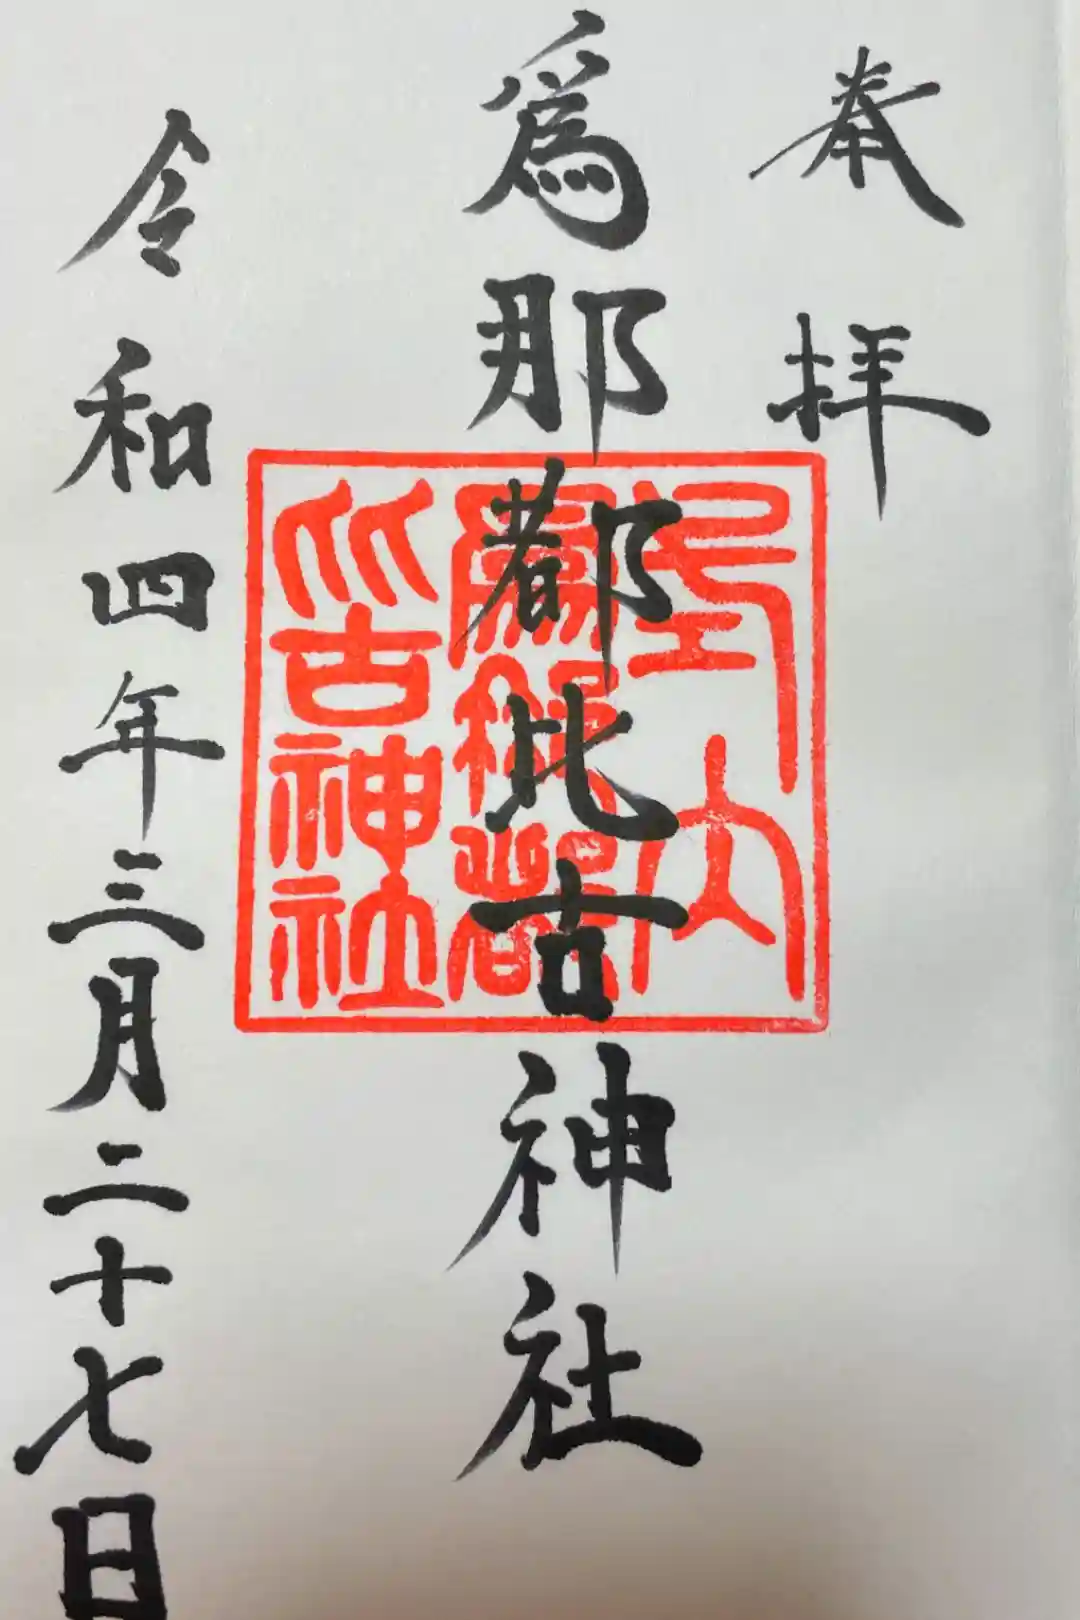 奉拝
爲那都比古神社
令和四年三月二十七日
式内
爲那都
比古神社